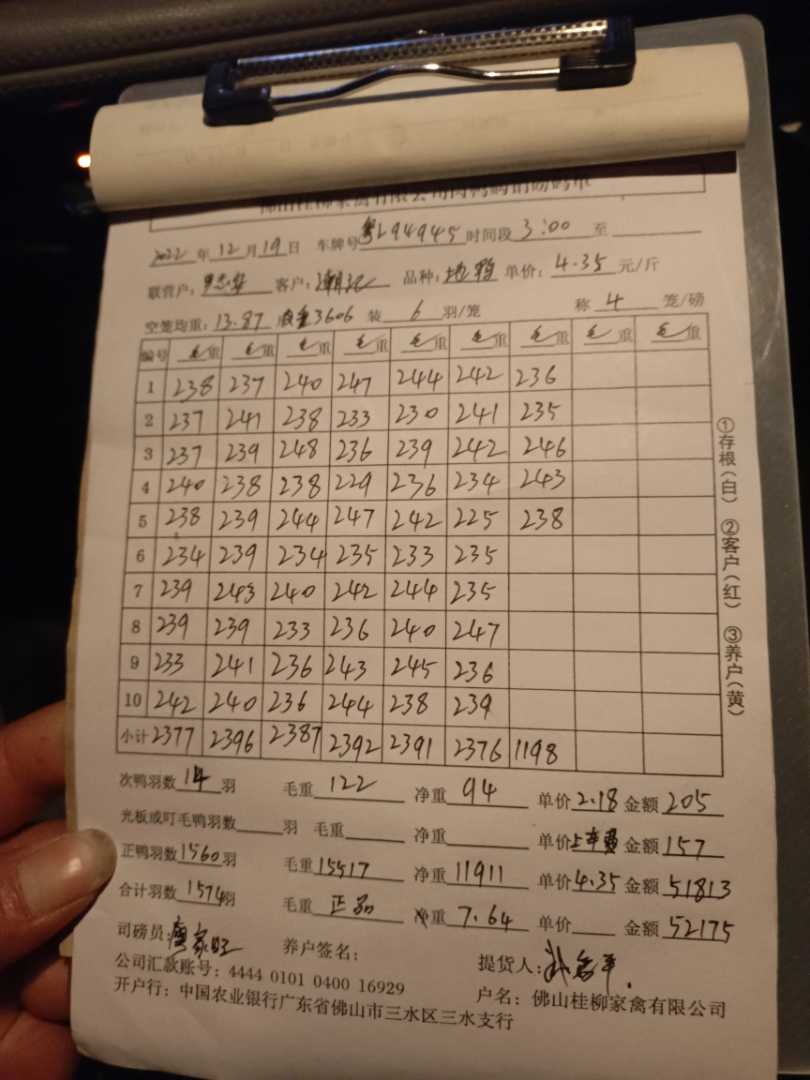 2022年12月19日 车牌号粤L94945时间段3:00 至
联营户: 客户: 品种: 单价: 4.35 元/斤
空笼均重: 13.87 3606 装 6 羽/笼 称 4 笼/磅
编号 毛重 毛重 毛重 毛重 毛重 毛重 毛重 毛重 毛重
1 238 237 240 247 244 242 236
2 237 241 238 233 230 241 235
3 237 239 248 236 239 242 246
4 240 238 238 229 236 234 243
5 238 239 244 247 242 225 238
6 234 239 234 235 233 235
7 239 243 240 242 244 235
8 239 239 233 236 240 247
9 233 241 236 243 245 236
10 242 240 236 244 238 239
小计 2377 2396 2387 2392 2391 2376 1198
次鸭羽数 14 羽 毛重 122 净重 94 单价2.18 金额 205
光板或叮毛鸭羽数 羽 毛重 净重 单价上车费 金额 157
正鸭羽数1560羽 毛重15517 净重 11911 单价4.35 金额 51813
合计羽数 1574羽 毛重 正品 净重 7.64 单价 金额 52175
司磅员: 养户签名: 提货人:
公司汇款账号: 4444 0101 0400 16929 户名: 佛山桂柳家禽有限公司
开户行: 中国农业银行广东省佛山市三水区三水支行
①存根(白) ②客户(红) ③养户(黄)